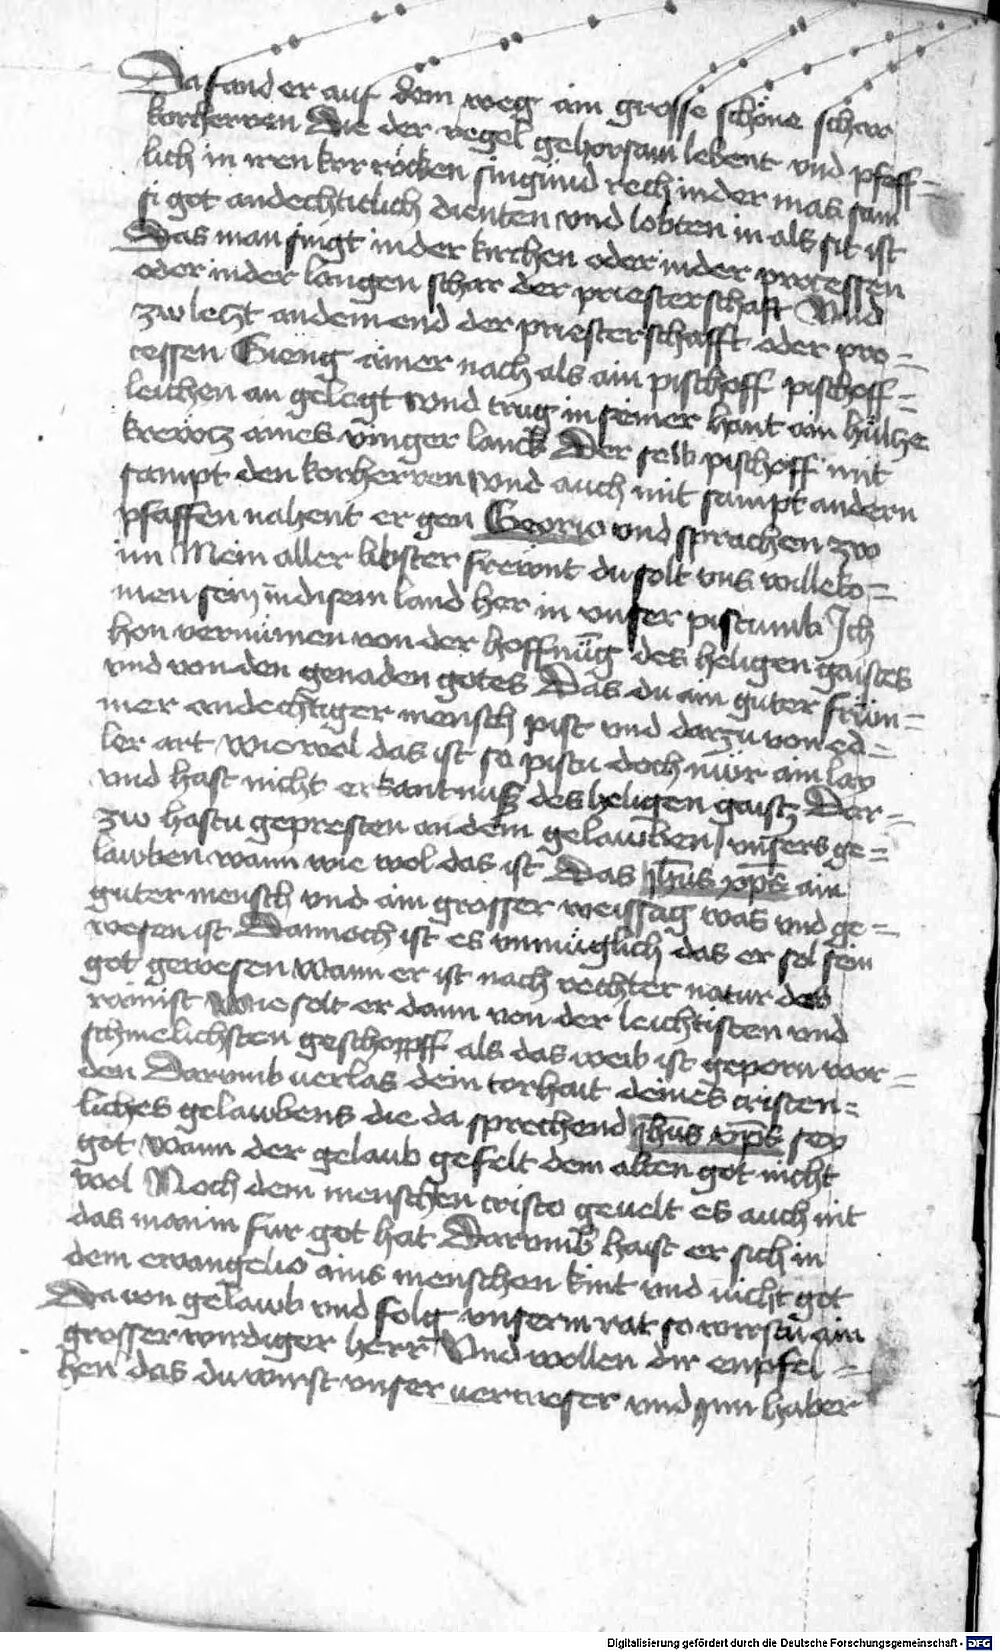 Da fand er auf dem weg ain grosse schöne schar
korherren Die der regel gehorsam lebent vnd pfeff=
lich in iren kor röcken singund rech in der mas sam
si got andechticlich dienten vnd lobten in als sit ist
Das man singt in der kirchen oder in der processen
oder in der langen schar der priesterschaft Vnd
zw leczt an dem end der priesterschafft oder pro=
cessen Gieng ainer nach als ain pischoff pischoff=
leichen an gelegt vnd trug in seiner hant ain hülcze
krewcz aines vinger lanck Der selb pischoff mit
sampt den korherren vnd auch mit sampt andern
pfaffen nahent er gen Georio vnd sprachen zw
im Mein aller libster frewnt du solt vns willeko=
men sein in disem land her in vnser pistumb Ich
hon vernumen von der hoffnüg des heligen gaistes
vnd von den genaden gotes Das du ain guter früm=
mer andechtiger mensch pist vnd darzu von ed=
ler art Wie wol das ist so pistu doch nür ain lay
vnd hast nicht erkantnuss des heligen gaistz Dar=
zw hastu gepresten an dem gelawben vnsers ge=
lawben wann wie wol das ist Das jhus xps ain
guter mensch vnd ain grosser weissag was vnd ge=
wesen ist Dannoch ist es vnmüglich das er sol sein
got gewesen Wann er ist nach rechter natur das
rainist Wie solt er dann von der leichtisten vnd
schmelichsten geschopff als das weib ist geporn wor=
den Darumb verlas dein torhait deines cristen=
liches gelawbens die da sprechend jhus xps sey
got Wann der gelaub gefelt dem alten got nicht
wol Noch dem menschen cristo geuelt es auch nit
das man in fur got hat Darumb haist er sich in
dem ewangelio ains menschen kint vnd nicht got
Da von gelawb vnd folg vnserm rat so wirstu ain
grosser wirdiger herr Vnd wollen dir enpfel=
hen das du wirst vnser verweser vnd inn haber
Digitalisierung gefördert durch die Deutsche Forschungsgemeinschaft - DFG